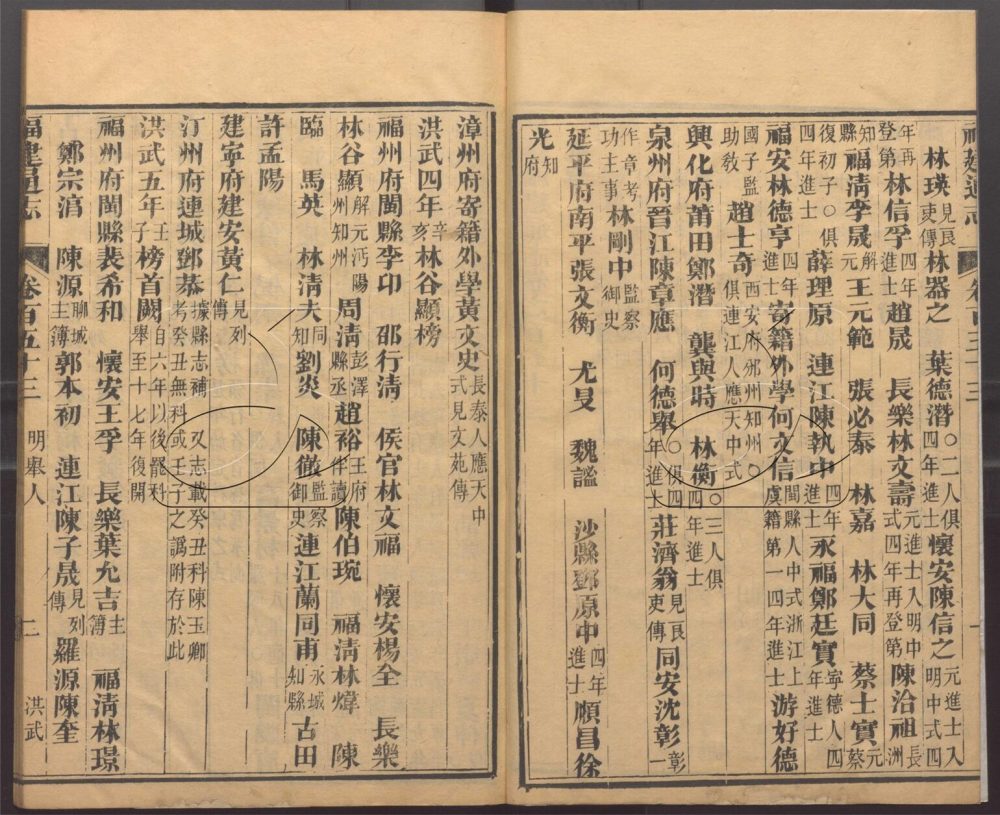 林瑛見良吏傳林器之 葉德潛〇二人俱四年進士懷安陳信之元進士入明中式四
年再登第林信孚四年進士趙晟 長樂林文壽元進士入明中式四年再登第陳治祖長洲
知縣福清李晟解元王元範 張必泰 林嘉 林大同 蔡士實元蔡
復初子〇俱四年進士薛理原 連江陳執中四年進士永福鄭廷實寧德人四年進士
福安林德亨四年進士寄籍外學何文信閩縣人中式浙江上虞籍第一四年進士游好德
國子監助教趙士奇西安府邠州知州〇俱連江人應天中式
興化府莆田鄭潛 龔與時 林衡〇三人俱四年進士
泉州府晉江陳章應 何德舉〇俱四年進士莊濟翁見良吏傳同安沈彰彰一
作章考功主事林剛中監察御史
延平府南平張文衡 尤旻 魏謐 沙縣鄧原中四年進士順昌徐
光知府
漳州府寄籍外學黃文史長泰人應天中式見文苑傳
洪武四年辛亥林谷顯榜
福州府閩縣李印 邵行清 侯官林文福 懷安楊全 長樂
林谷顯解元沔陽州知州周清彭澤縣丞趙裕王府伴讀陳伯琬 福清林煒 陳
臨 馬英 林清夫同知劉炎 陳徽監察御史連江蘭同甫永城知縣古田
許孟陽
建寧府建安黃仁見列傳
汀州府連城鄧恭據縣志補 又志載癸丑科陳玉卿考癸丑無科或壬子之譌附存於此
洪武五年壬子榜首闕自六年以後罷科舉至十七年復開
福州府閩縣裴希和 懷安王孚 長樂葉允吉主簿 福清林璟
鄭宗濱 陳源聊城主簿郭本初 連江陳子晟見列傳 羅源陳奎
福建通志 卷百五十三 明舉人 二 洪武